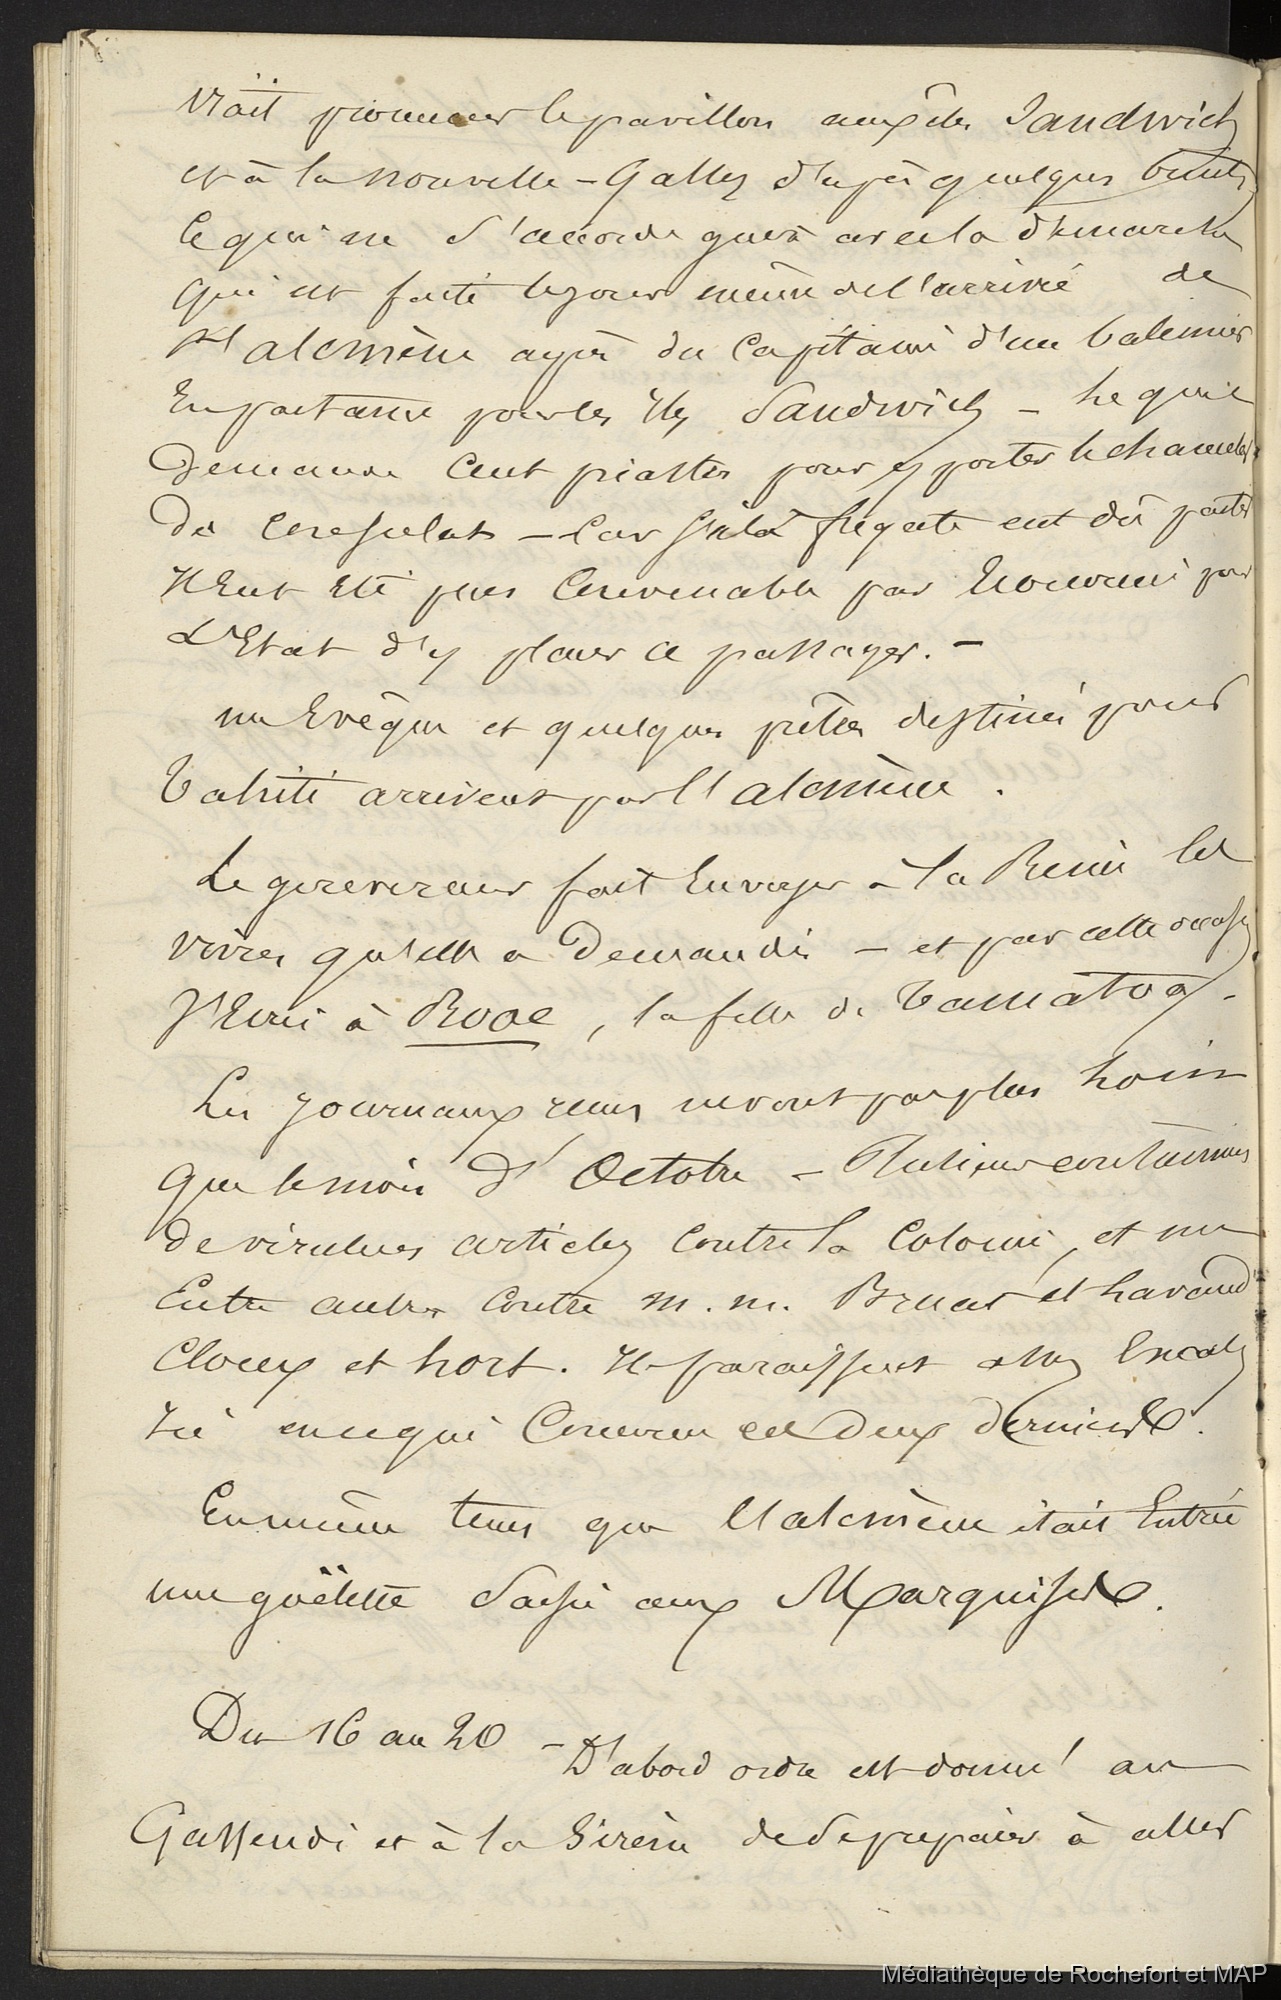 vrait promener le pavillon aux îles Sandwich
et à la nouvelle-Galles d'après quelques bruits
ce qui ne s'accorde guère avec la démarche
qui est faite le jour même de l'arrivée de
l'alcmène auprès du Capitaine d'un baleinier
En partance pour les Iles Sandwich - lequel
Demande Cent piastres pour y porter le chancelier
du Consulat - Car si la frégate eut dû partir
Il Eut été plus Convenable par Economie pour
L'Etat d'y placer ce passager. -
un Evêque et quelques prêtres destinés pour
Tahiti arrivent par l'alcmène.
Le gouverneur fait Envoyer à la Reine les
vivres qu'elle a Demandés - et par cette occasion
J'Ecris à Rooe, la fille de Tamatoa -
Les journaux reçus ne vont pas plus loin
que le mois d'Octobre - Plusieurs contiennent
de virulens articles Contre la Colonie, et un
Entre autres Contre m.m. Bruat et Lavaud
Cloux et hort. Ils paraissent assez
en ce qui Concerne ces deux derniers.
En même tems que l'alcmène était Entrée
une goëlette saisie aux Marquises.
Du 16 au 20 - D'abord ordre est donné au
Gassendi et à la Sirène de se préparer à aller
Médiathèque de Rochefort et MAP